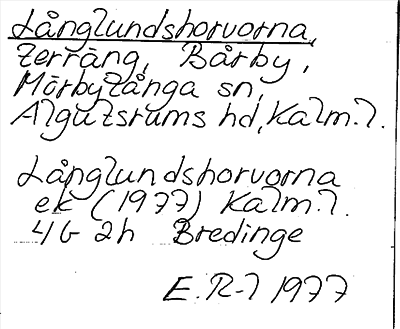 Långlundshorvorna,
terräng, Bårby,
Mörbylånga sn,
Algutsrums hd, Kalm.l.
Långlundshorvorna
ek (1977) Kalm.l.
4G 2h Bredinge
E.R-l 1977